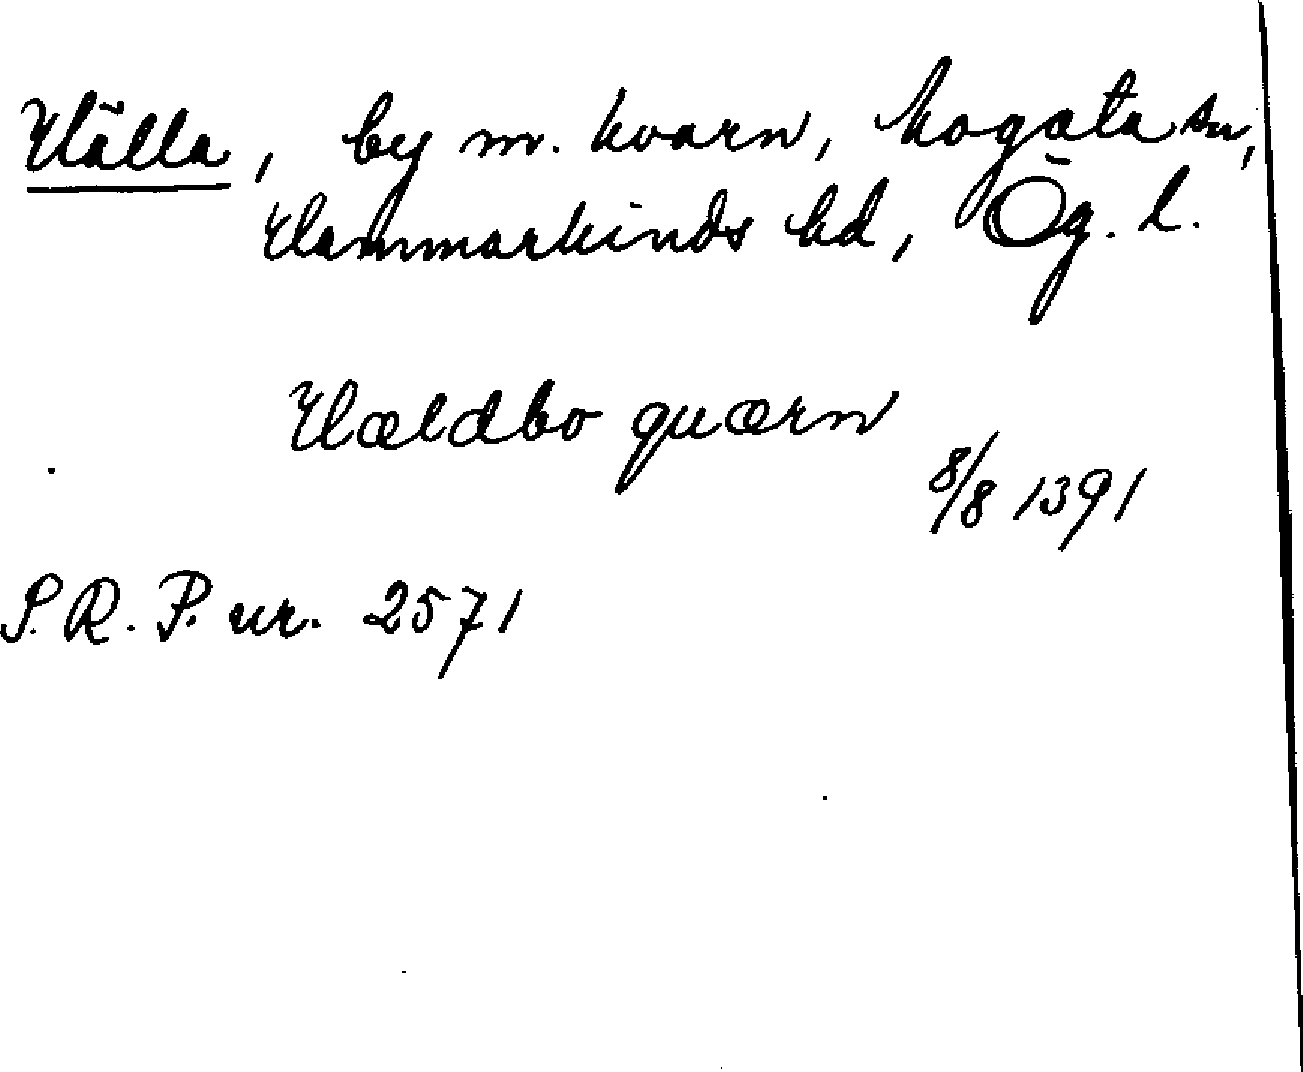 Hälla, by m. kvarn, Mogata sn,
Hammarkinds hd, Ög. l.
Hældbo quærn
8/8 1391
S. R. P. nr. 2571